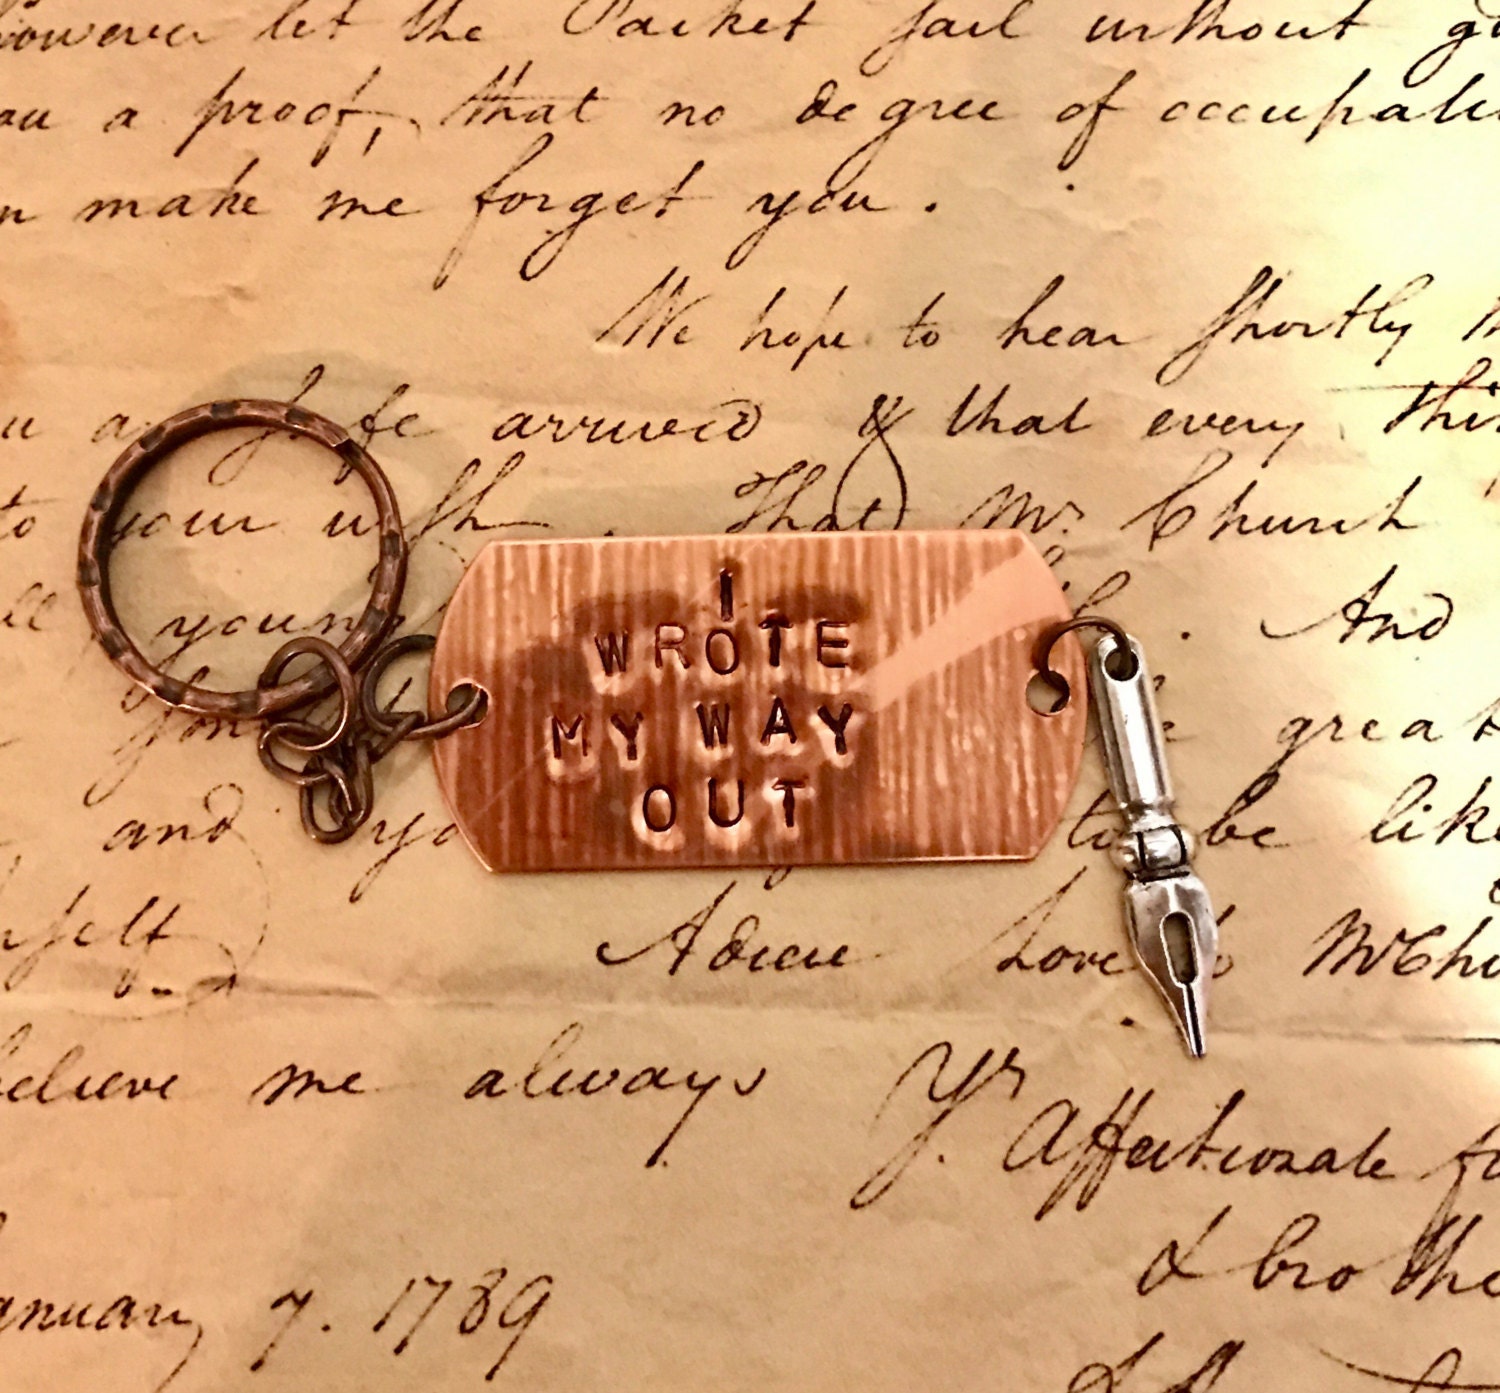 however let the Packet sail without
you a proof, that no degree of
make me forget you.
We hope to hear shortly
arrived & that every
to your wish. That Mr. Church
And
great
and to be like
Adieu Love to
believe me always Yr
Affectionate
& brother
January 7. 1789
I
WROTE
MY WAY
OUT